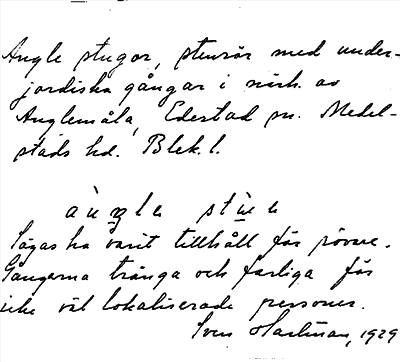 Angle stugor, stenrör med under-
jordiska gångar i närh. av
Anglemåla, Edestad sn. Medel-
stads hd. Blek. l.
Sägas ha varit tillhåll för rövare.
Gångerna trånga och farliga för
icke väl lokaliserade personer.
Sven Hartman, 1929